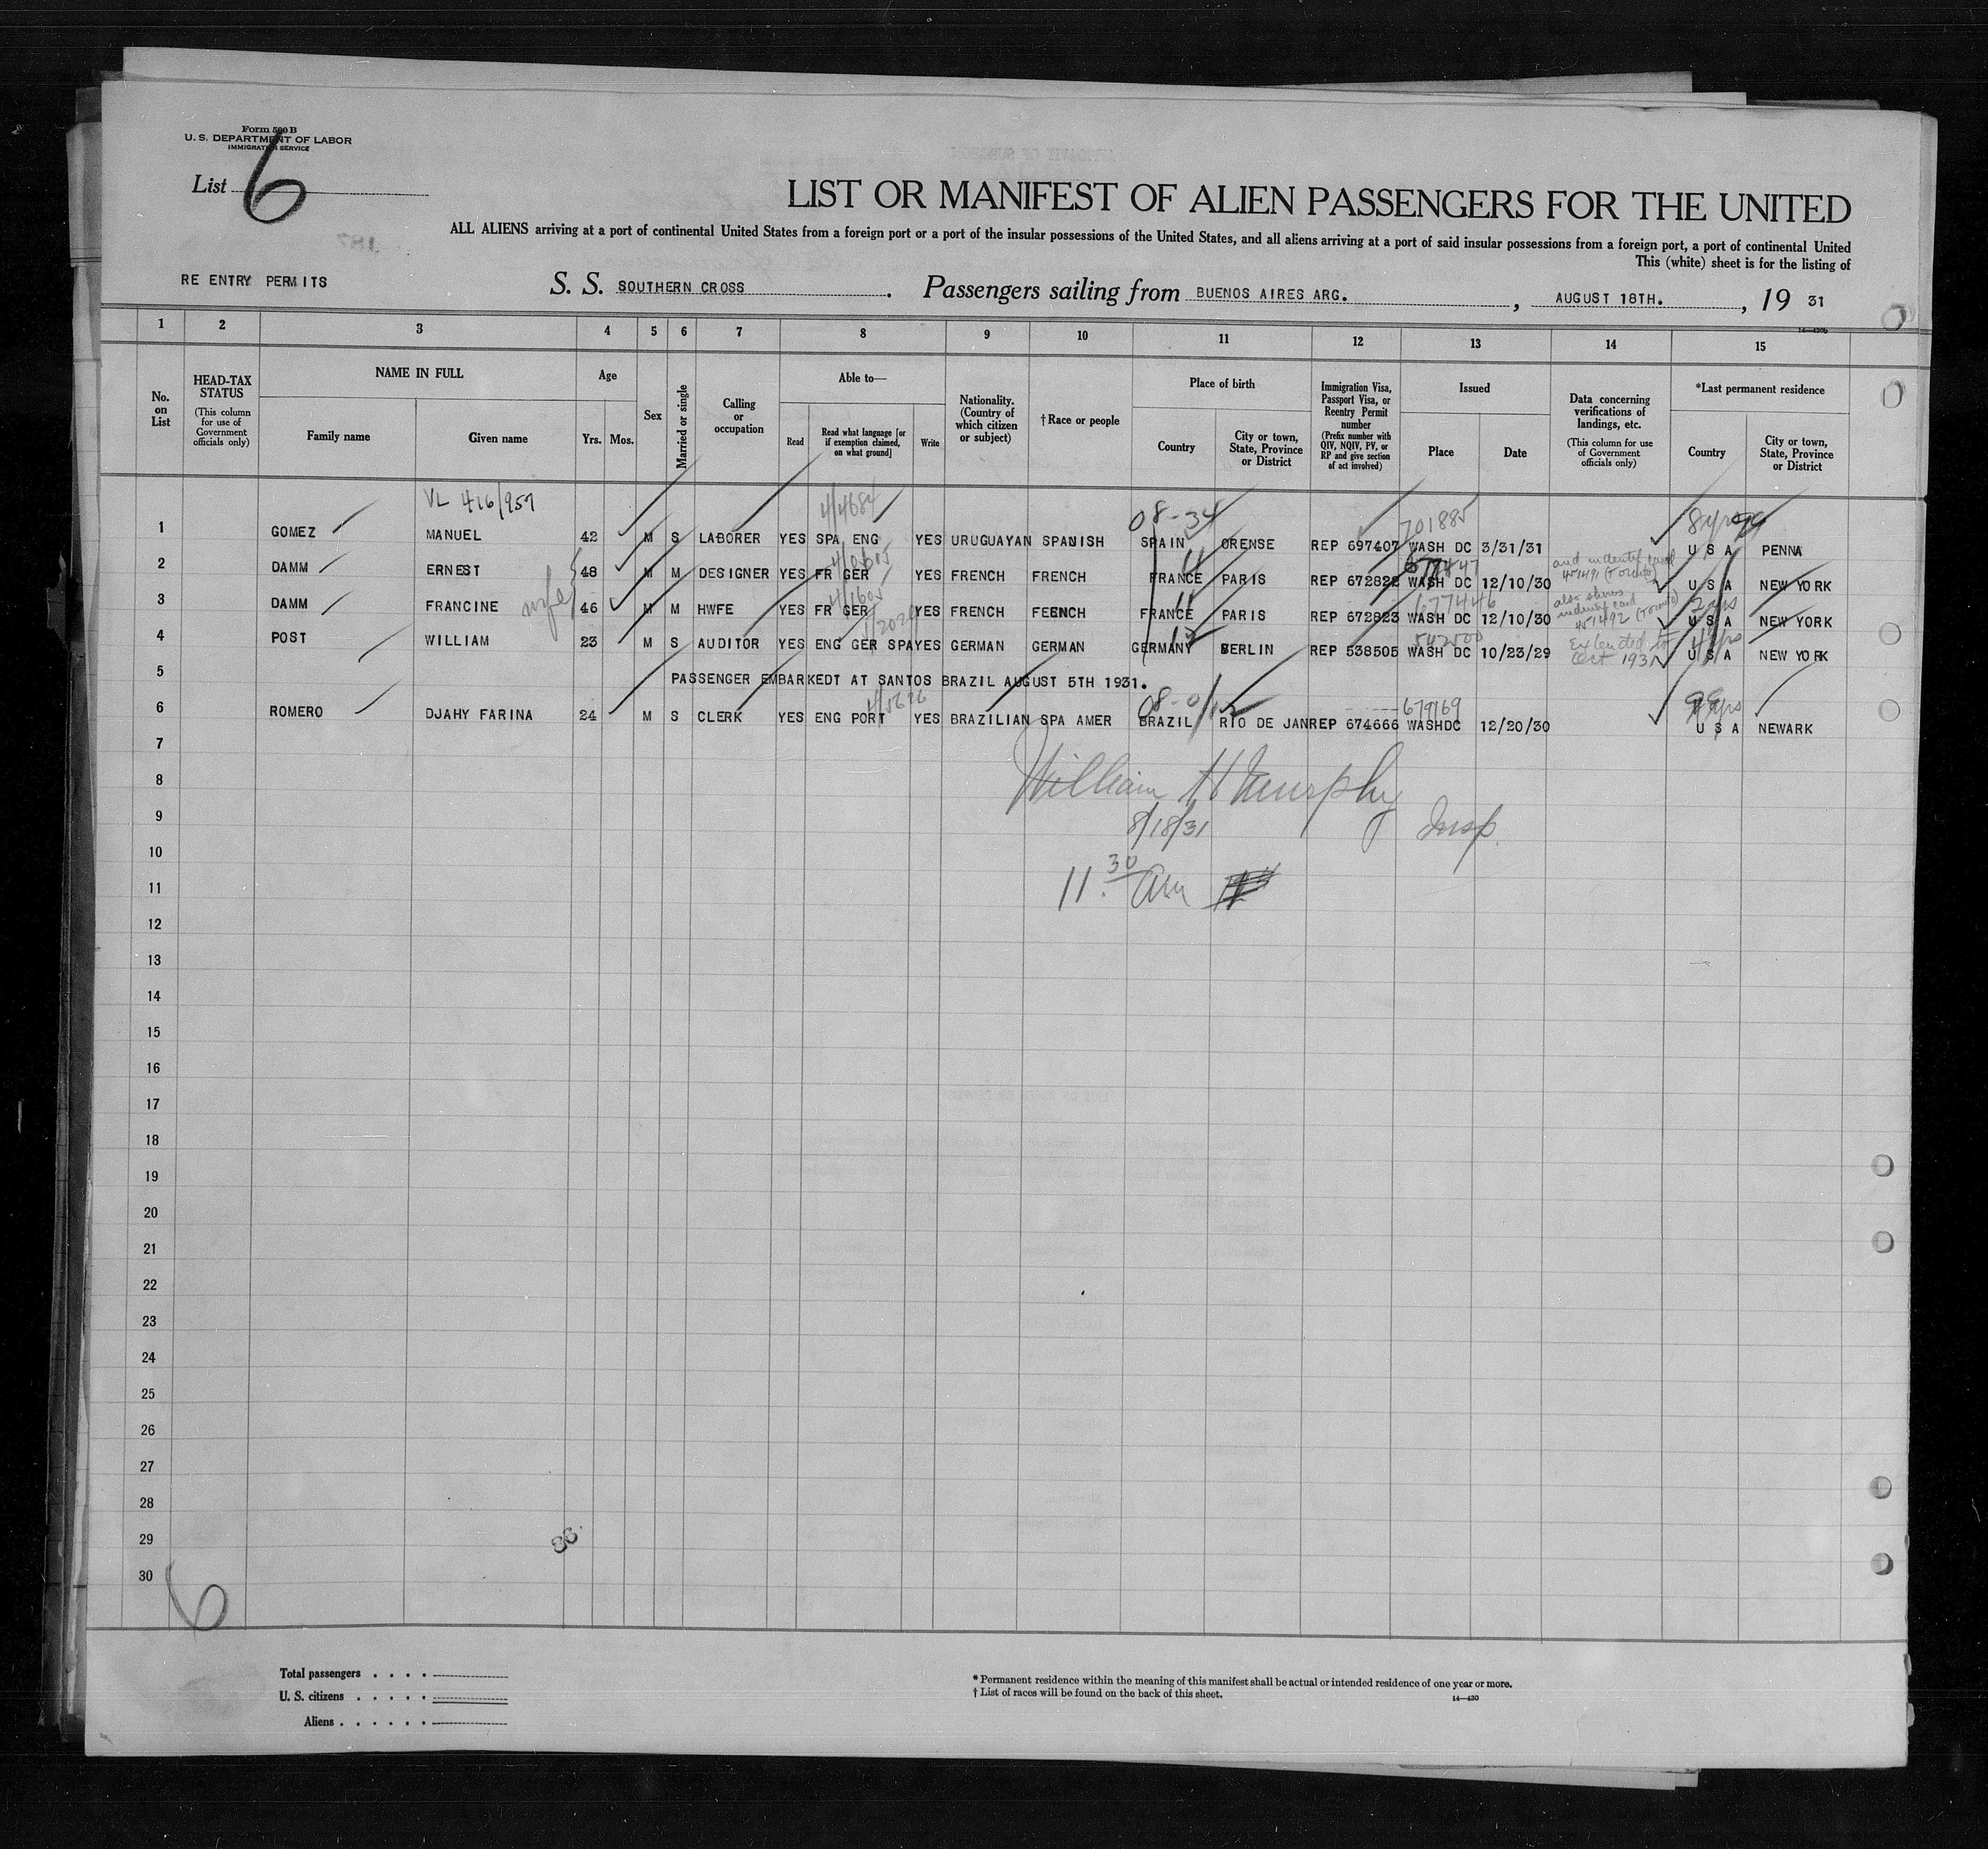 Form 500 B
U. S. DEPARTMENT OF LABOR
IMMIGRATION SERVICE
List 6
LIST OR MANIFEST OF ALIEN PASSENGERS FOR THE UNITED
ALL ALIENS arriving at a port of continental United States from a foreign port or a port of the insular possessions of the United States, and all aliens arriving at a port of said insular possessions from a foreign port, a port of continental United
This (white) sheet is for the listing of
RE ENTRY PERMITS S. S. SOUTHERN CROSS. Passengers sailing from BUENOS AIRES ARG. , AUGUST 18TH. , 19 31
1 2 3 4 5 6 7 8 9 10 11 12 13 14 15
No. on List
HEAD-TAX STATUS
(This column for use of Government officials only)
NAME IN FULL
Family name
Given name
Age
Yrs.
Mos.
Sex
Married or single
Calling or occupation
Able to—
Read
Read what language [or if exemption claimed, on what ground]
Write
Nationality. (Country of which citizen or subject)
†Race or people
Place of birth
Country
City or town, State, Province or District
Immigration Visa, Passport Visa, or Reentry Permit number
(Prefix number with QIV, NQIV, PV, or RP and give section of act involved)
Issued
Place
Date
Data concerning verifications of landings, etc.
(This column for use of Government officials only)
*Last permanent residence
Country
City or town, State, Province or District
VL 416/957
08-34 701885
1 GOMEZ MANUEL 42 M S LABORER YES SPA ENG YES URUGUAYAN SPANISH SPAIN ORENSE REP 697407 WASH DC 3/31/31 U S A PENNA
677447 and indentity card 451491 (Toronto)
2 DAMM ERNEST 48 M M DESIGNER YES FR GER YES FRENCH FRENCH FRANCE PARIS REP 672822 WASH DC 12/10/30 U S A NEW YORK
wife 677446 also shows indentity card 451492 (Toronto) 2 yrs
3 DAMM FRANCINE 46 M M HWFE YES FR GER YES FRENCH FEENCH FRANCE PARIS REP 672823 WASH DC 12/10/30 U S A NEW YORK
542500 Extended to Oct 1931 4 yrs
4 POST WILLIAM 23 M S AUDITOR YES ENG GER SPA YES GERMAN GERMAN GERMANY BERLIN REP 538505 WASH DC 10/23/29 U S A NEW YORK
5 PASSENGER EMBARKEDT AT SANTOS BRAZIL AUGUST 5TH 1931.
679169
6 ROMERO DJAHY FARINA 24 M S CLERK YES ENG PORT YES BRAZILIAN SPA AMER BRAZIL RIO DE JAN REP 674666 WASHDC 12/20/30 U S A NEWARK
7
William H Murphy
8
8/18/31 Insp.
9
10
11.30 am
11
12
13
14
15
16
17
18
19
20
21
22
23
24
25
26
27
28
29
30
6
Total passengers . . . .
U. S. citizens . . . . .
Aliens . . . . . .
* Permanent residence within the meaning of this manifest shall be actual or intended residence of one year or more.
† List of races will be found on the back of this sheet.
14—430